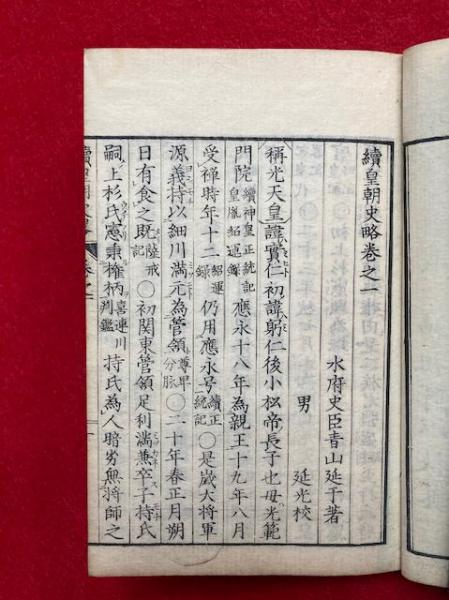 續皇朝史略卷之一
水府史臣青山延于著
男 延光校
稱光天皇諱實仁初諱躬仁後小松帝長子也母光範
門院續神皇正統記皇胤紹運錄應永十八年為親王十九年八月
受禪時年十二紹運錄仍用應永号續正統記〇是歲大將軍
源義持以細川滿元為管領尊卑分脉〇二十年春正月朔
日有食之既薩戒記〇初関東管領足利滿兼卒子持氏
嗣上杉氏憲秉権柄喜連川判鑑持氏為人暗劣無將師之
續皇朝史略 卷之一